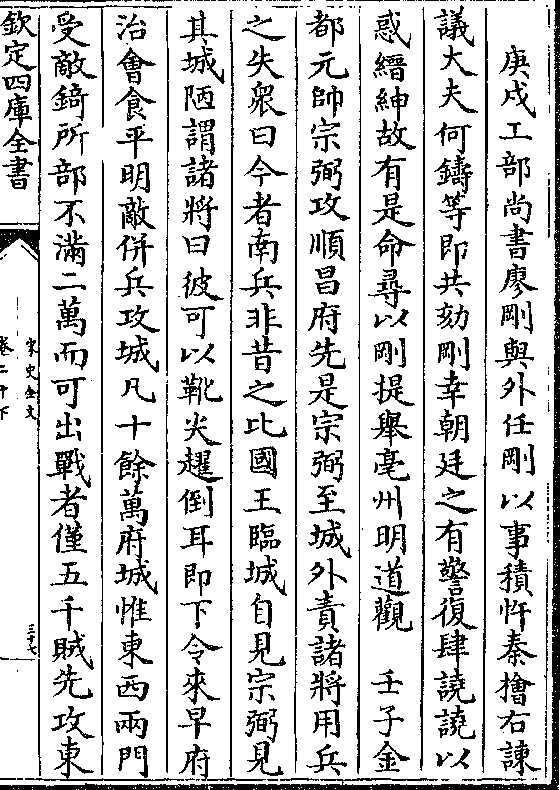 庚戌工部尚書廖剛與外任剛以事積忤秦檜右諫
議大夫何鑄等即共劾剛幸朝廷之有警復肆譊譊以
惑縉紳故有是命尋以剛提舉亳州明道觀　壬子金
都元帥宗弼攻順昌府先是宗弼至城外責諸將用兵
之失衆曰今者南兵非昔之比國王臨城自見宗弼見
其城陋謂諸將曰彼可以靴尖趯倒耳即下令來早府
治會食平明敵併兵攻城凡十餘萬府城惟東西兩門
受敵錡所部不滿二萬而可出戰者僅五千賊先攻東
欽定四庫全書
宋史全文
卷二十下
三十七